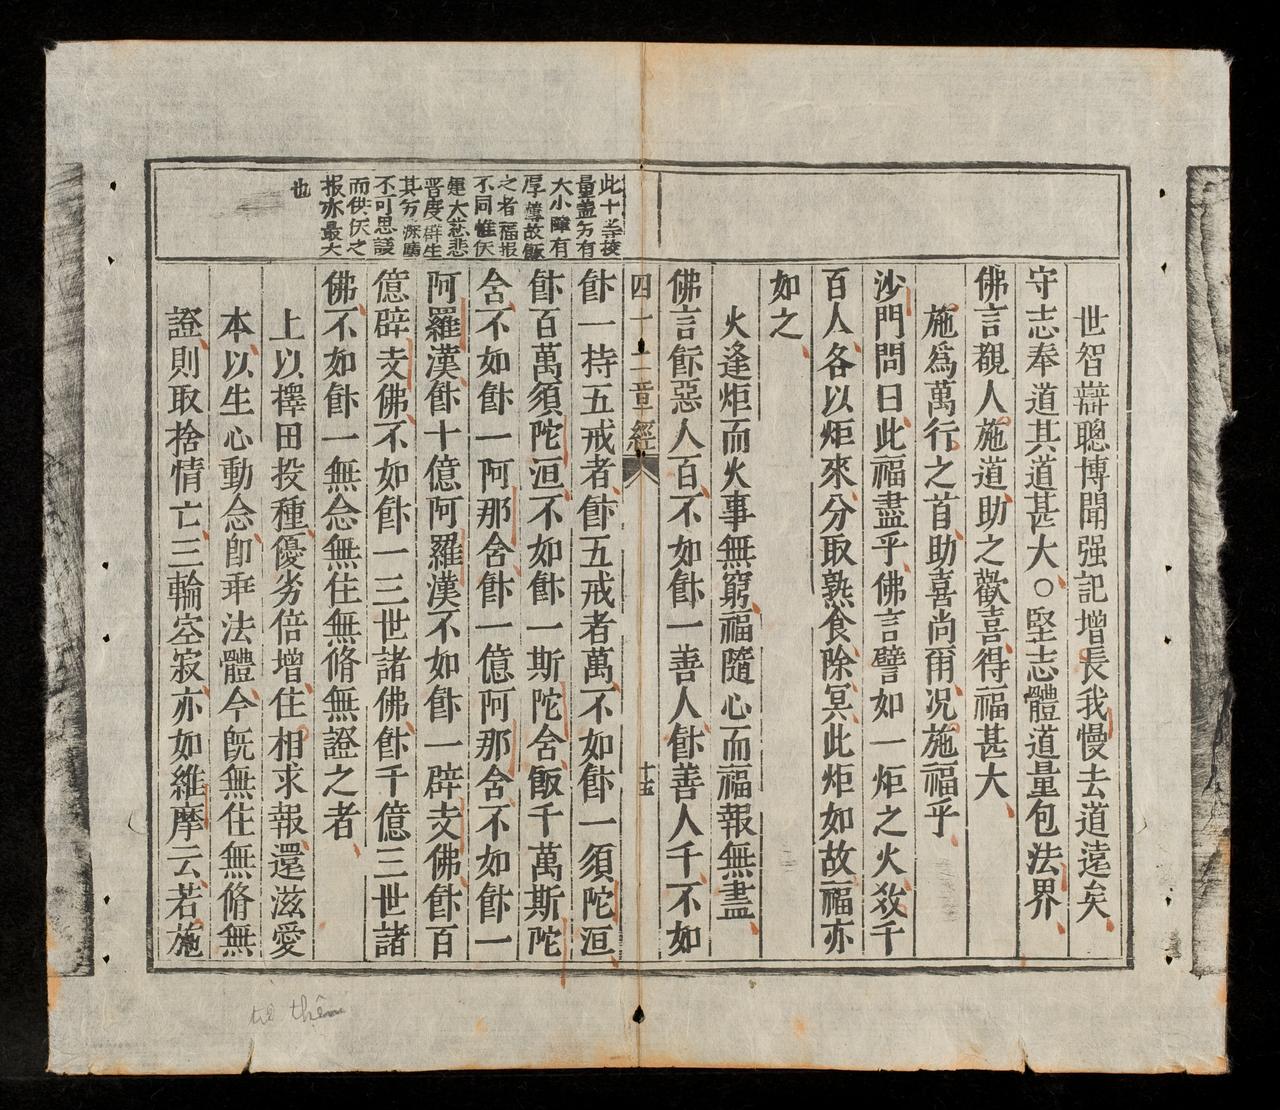 世智辯聰博聞强記增長我慢去道遠矣
守志奉道其道甚大○堅志體道量包法界
佛言覩人施道助之歡喜得福甚大
施爲萬行之首助喜尚爾况施福乎
沙門問曰此福盡乎佛言譬如一炬之火數千
百人各以炬來分取熟食除冥此炬如故福亦
如之
火逢炬而火事無窮福隨心而福報無盡
佛言飰惡人百不如飰一善人飰善人千不如
四十二章經
十五
飰一持五戒者飰五戒者萬不如飰一須陀洹
飰百萬須陀洹不如飰一斯陀含飯千萬斯陀
含不如飰一阿那含飰一億阿那含不如飰一
阿羅漢飰十億阿羅漢不如飰一辟支佛飰百
億辟支佛不如飰一三世諸佛飰千億三世諸
佛不如飰一無念無住無脩無證之者
上以擇田投種優劣倍增住相求報還滋愛
本以生心動念卽乖法體今旣無住無脩無
證則取捨情亡三輪空寂亦如維摩云若施
此十等挍
量蓋為有
大小障有
厚薄故飯
之者福報
不同惟佚
運大慈悲
普度群生
其為深勝
不可思議
而供佚之
报亦最大
也
tê thêm